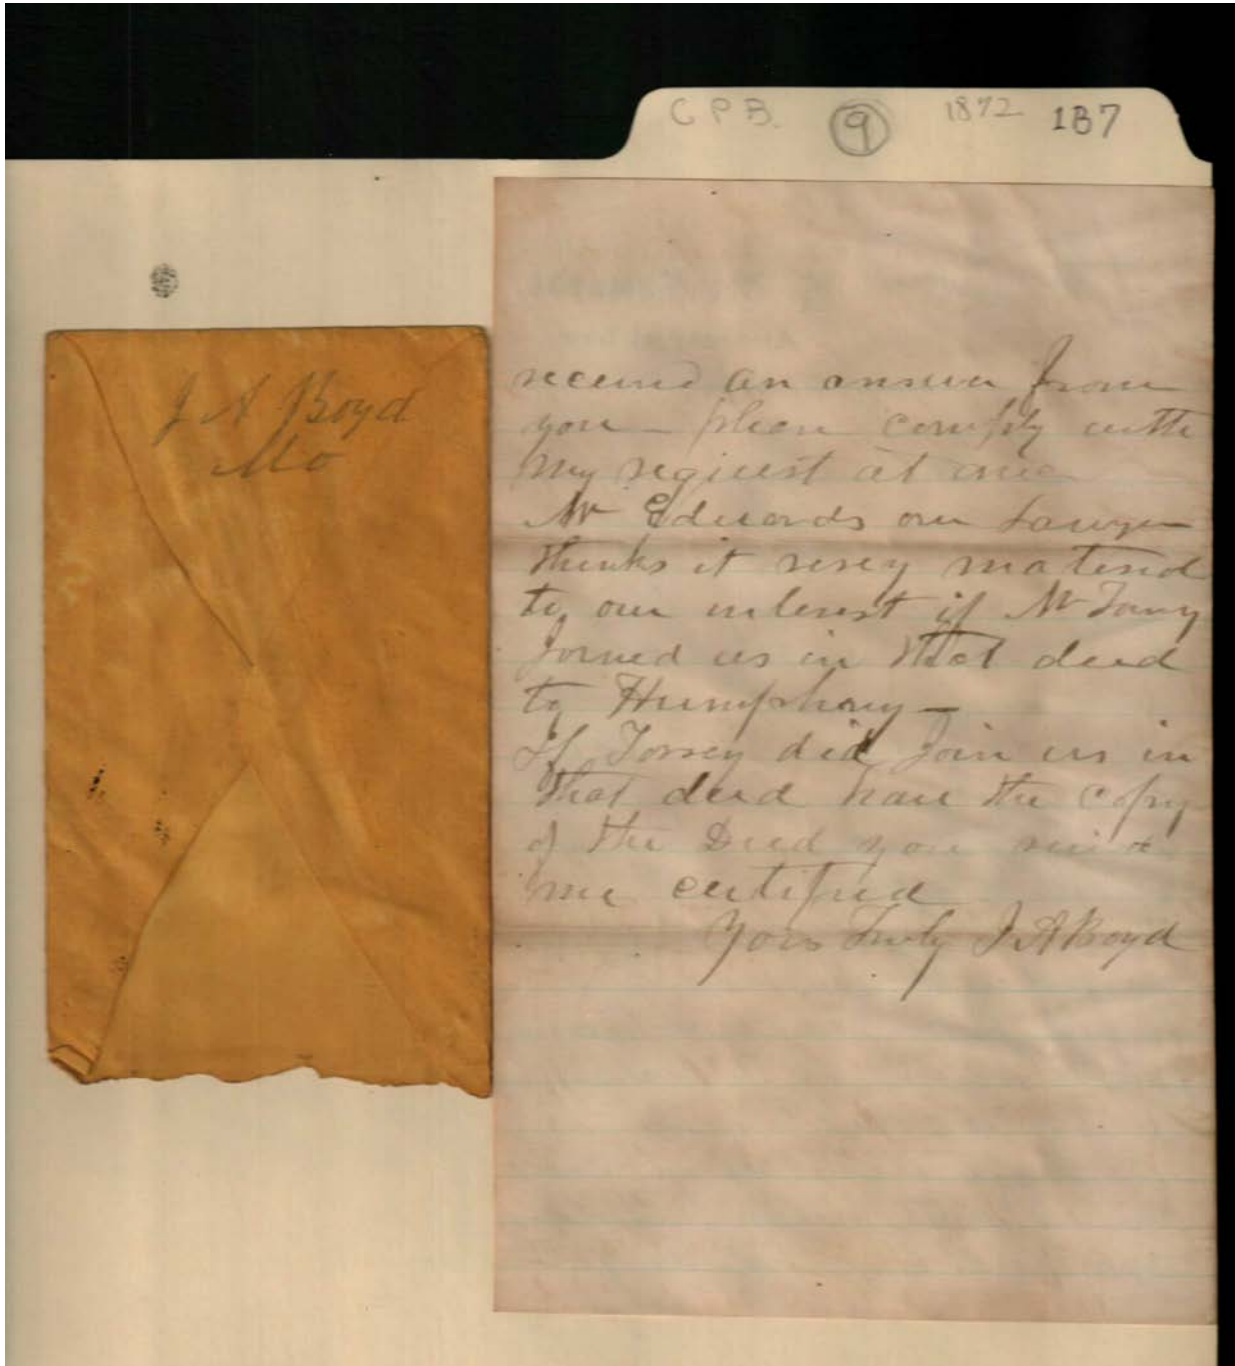 G P B. 9 1872 187
J A Boyd
Mo
received an answer from
you – please comply with
my request at once
Mr Edwards our Lawyer
thinks it very material
to our interest if Mr Torrey
Joined us in that deed
to Humphrey –
If Torrey did Join us in
that deed have the Copy
of the Deed you send
me certified
Yours Truly J A Boyd